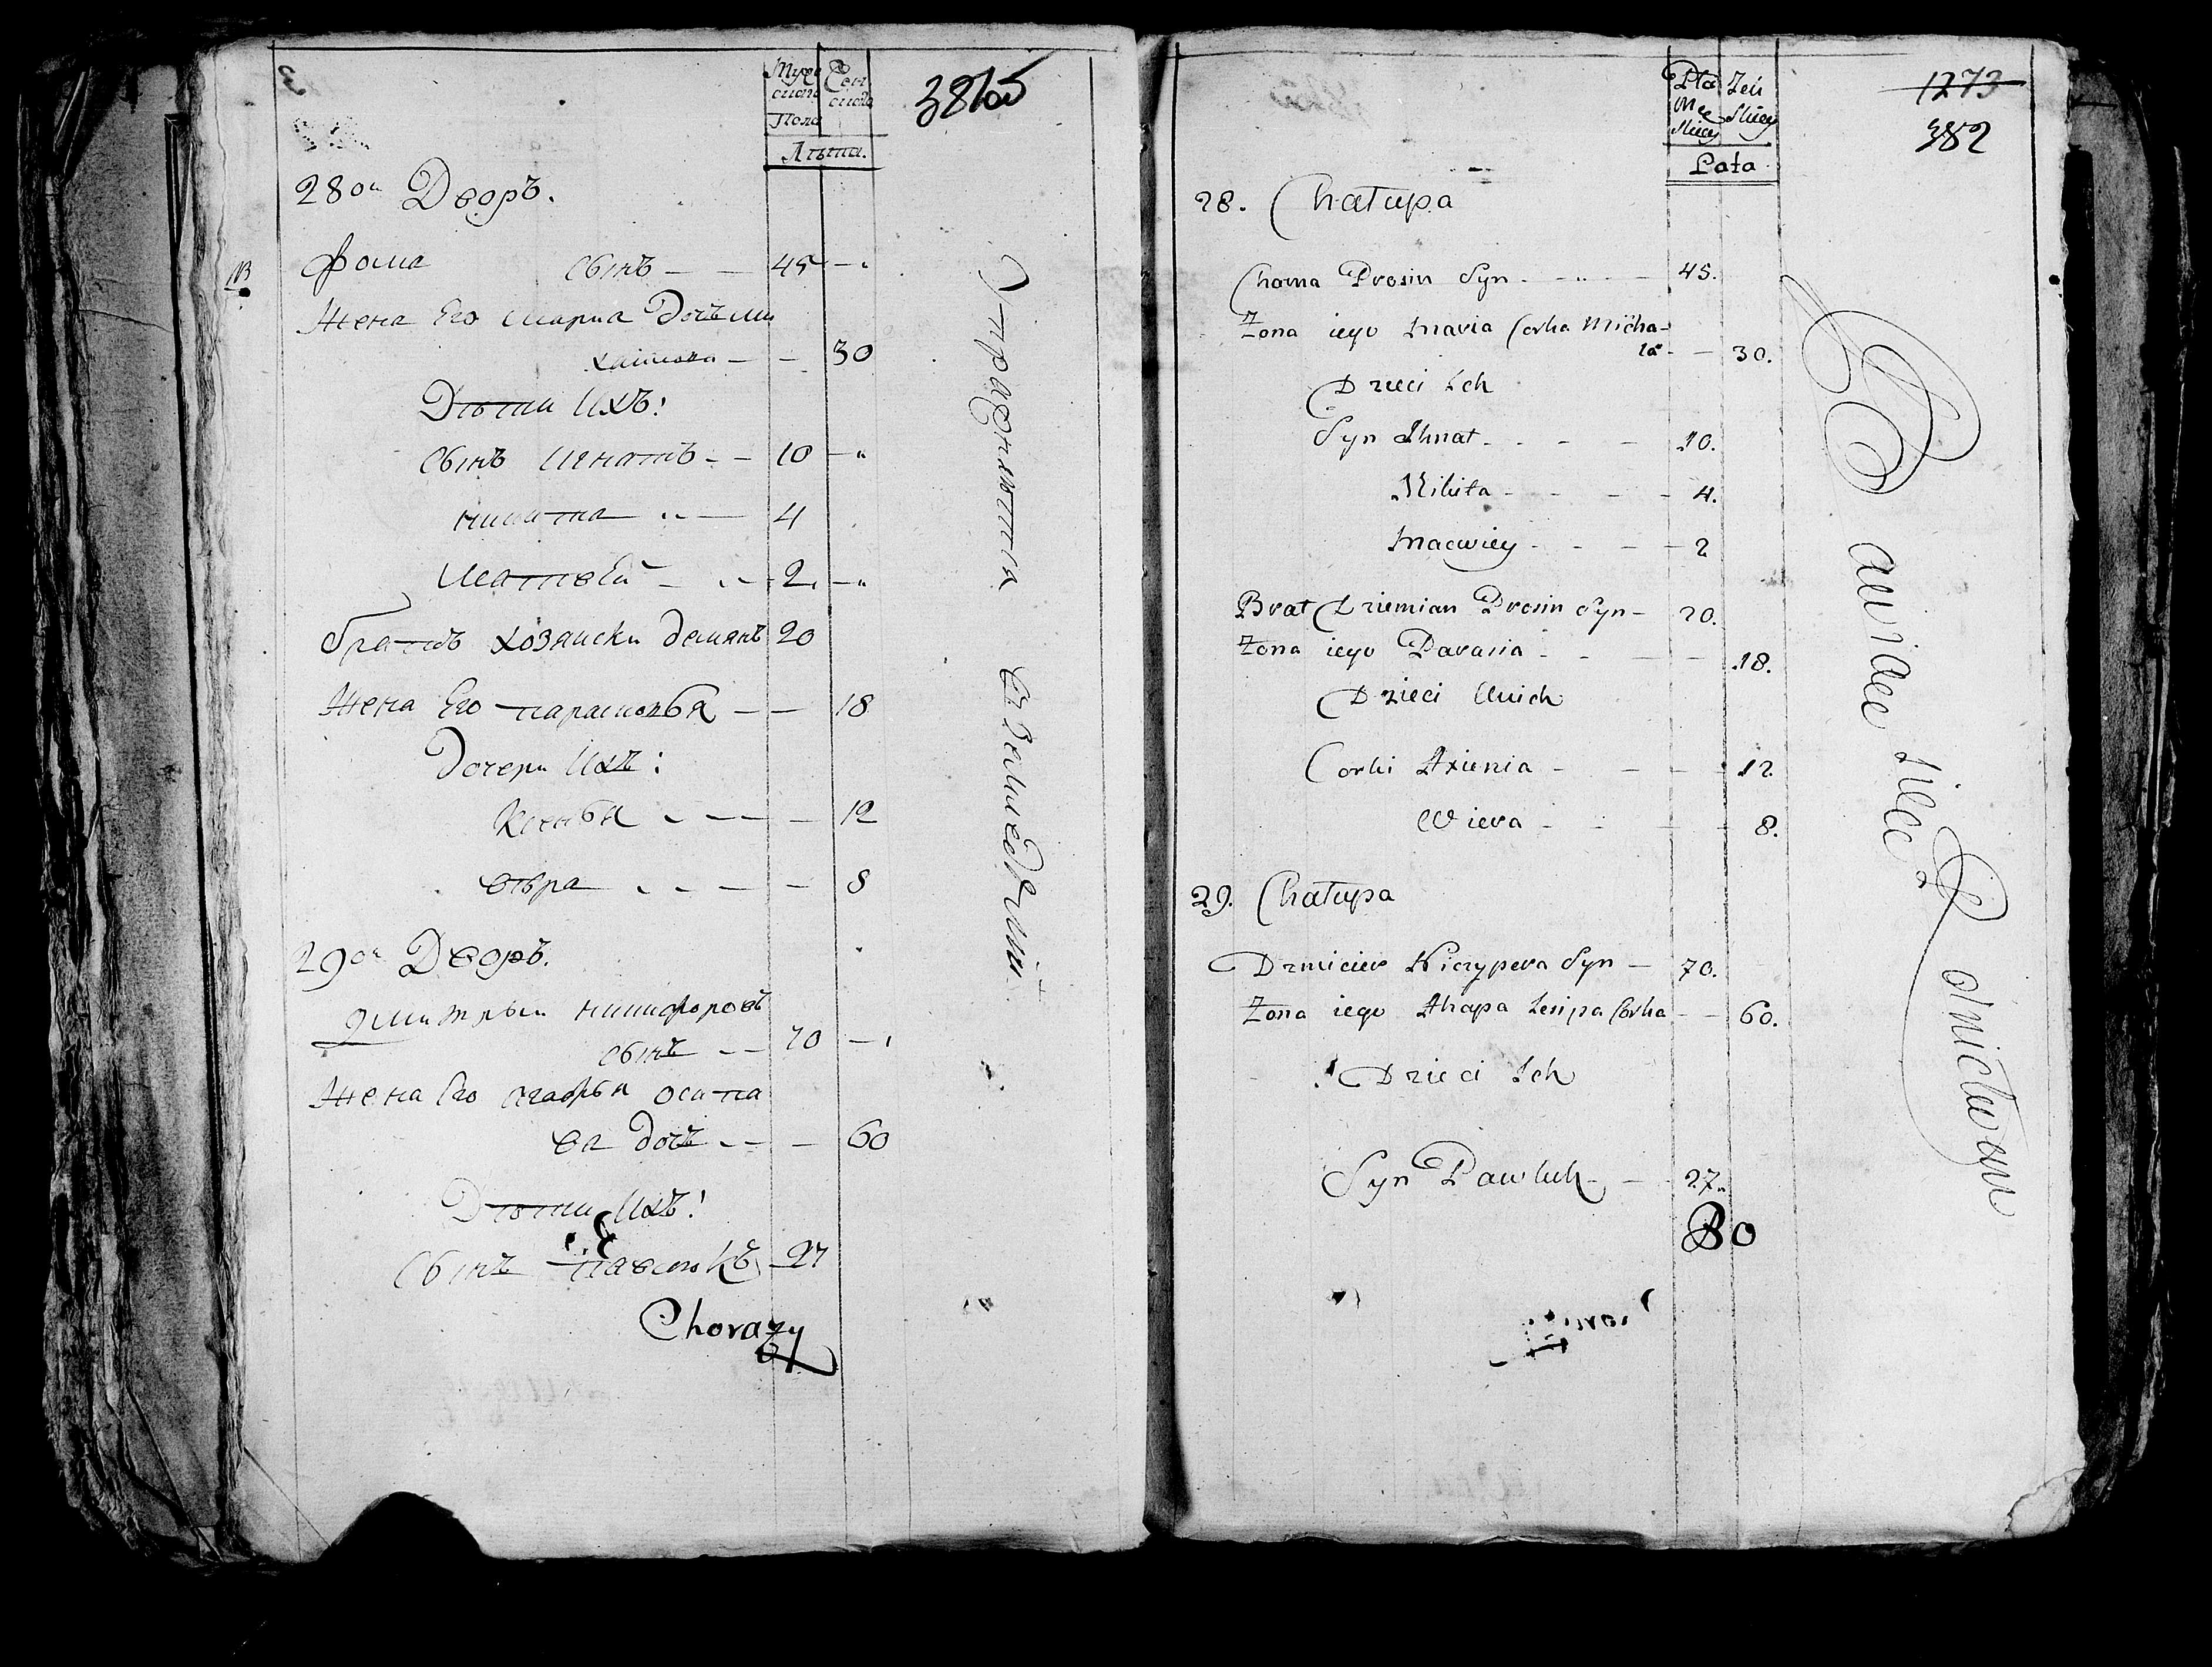 Муже
скаго
Пола
Жен
скаго
Лѣта.
381об
28ой Дворъ.
Фома сынъ — — 45 —
Жена Его Мариа дочь Ми
хайлова — — 30
Дѣти Ихъ:
Сынъ Игнатъ — — 10 —
Никита — 4
Матвей — 2 —
братъ хозяиски демянъ 20
Жена Его парасковья — — 18
Дочери Ихъ:
Ксенья — — — 12
вѣра — — — 8
29ой Дворъ.
Дмитрыи никифоровъ
сынъ — — 70 —
Жена Его Агафья осипо
ва дочь — — 60
Дѣти Ихъ:
Сынъ павлюкъ — 27
Chorązy
Упражняется
в Земледелии.
Płci
Mę
skiey
Żeń
skiey
Lata
1273
382
28. Chałupa
Choma Prosin Syn - - - 45.
Zona iego Maria Corka Micha-
ła - — 30.
Dzieci Ich
Syn Ihnat - - - 10.
Mikita - - - 4.
Maciey - - - 2
Brat Dziemian Prosin Syn - 20.
Zona iego Parasia - - - 18.
Dzieci Onich
Corki Axienia - - - 12
Wiera - - - 8.
29. Chałupa
Dzmicier Niczypera Syn — 70.
Zona iego Ahapa Lesipa Corka - - 60.
Dzieci Ich
Syn Pawluk - - 27.
Bawiące się Rolnictwem